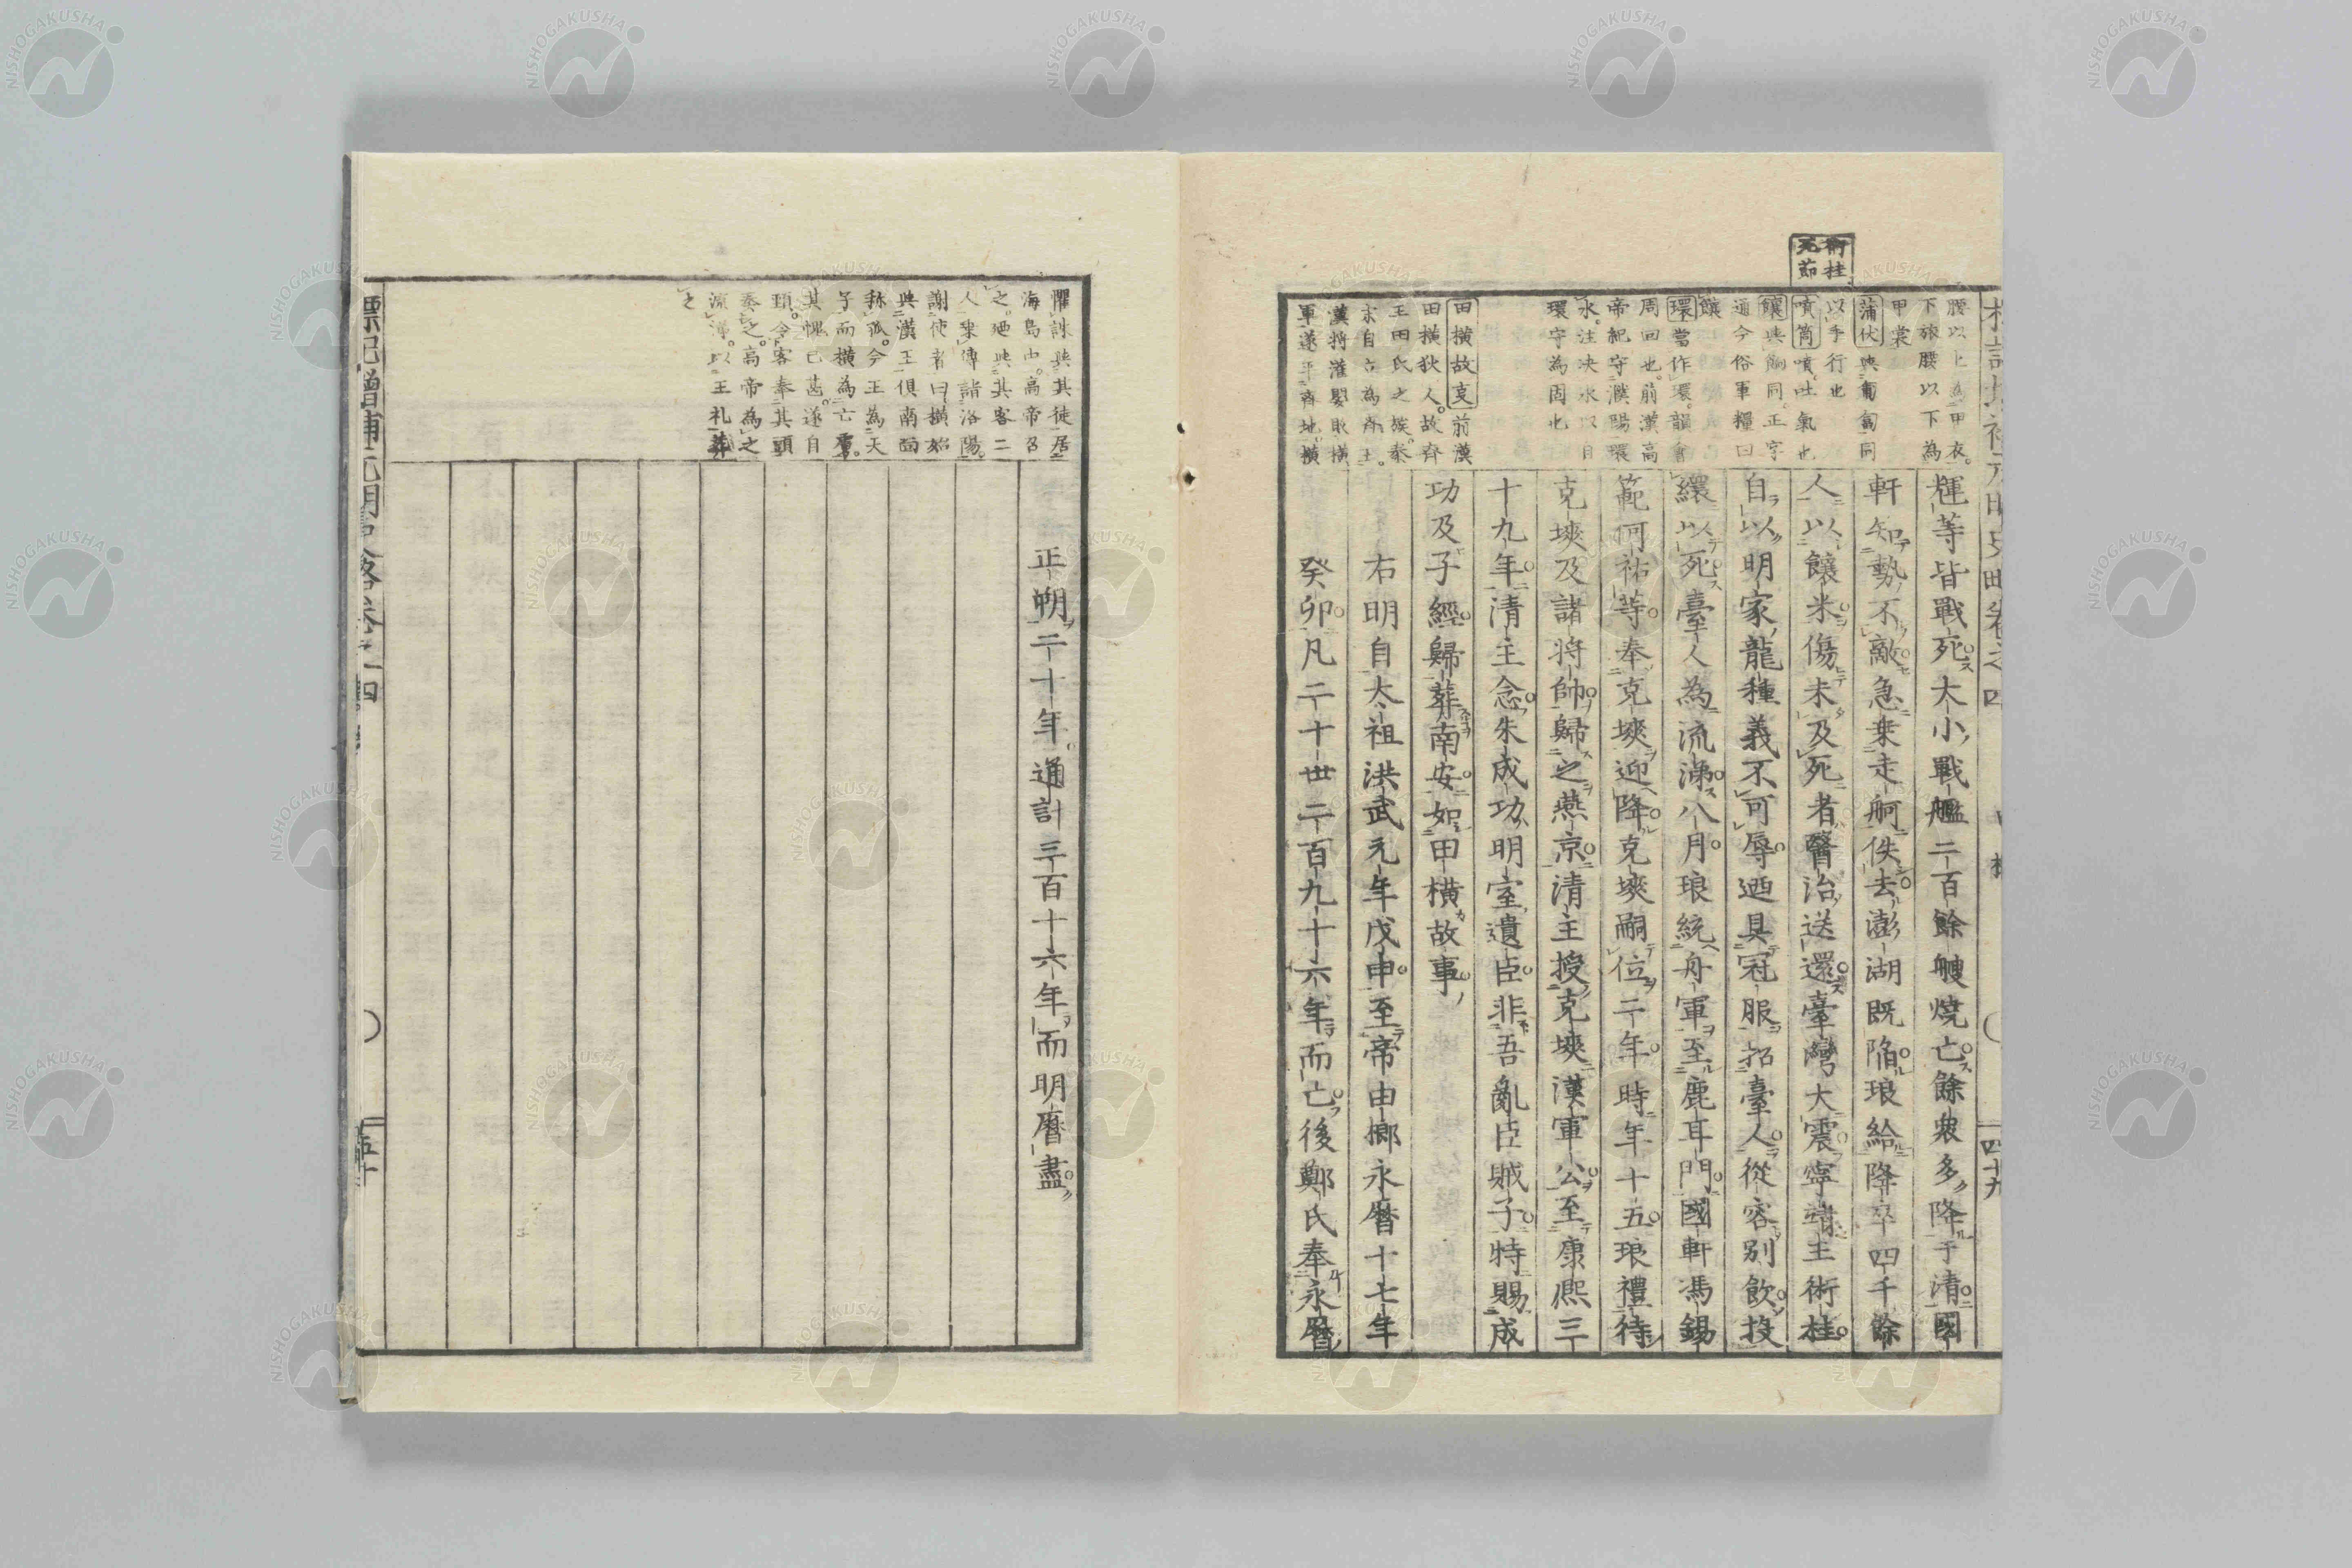 術桂
元節
腰以上為甲衣。
下旅腰以下為
甲裳
蒲伏與匍匐同
以手行也
噴筒噴。吐氣也
饟與餉同。正字
通今俗軍糧曰
饟
環當作環。韻會
周回也。前漢高
帝紀守濮陽環
水。注決水以自
環守為固也
田橫故事前漢
田橫狄人。故齊
王田氏之族。秦
末自立為齊王。
漢將灌嬰敗橫
軍遂平齊地。橫
輝等皆戰死大小戰艦二百餘艘燒亡餘衆多降于清國
軒知勢不敵急乗走舸佚去澎湖既陷琅給降卒四千餘
人以饟米傷未及死者醫治送還臺灣大震寧靖王術桂
自以明家龍種義不可辱迺具冠服招臺人從容別飲投
繯以死臺人為流涕八月琅統舟軍至鹿耳門國軒馮錫
範何祐等奉克塽迎降克塽嗣位二年時年十五琅禮待
克塽及諸將帥歸之燕京清主授克塽漢軍公至康熙三
十九年清主念朱成功明室遺臣非吾亂臣賊子特賜成
功及子經歸葬南安如田橫故事
右明自太祖洪武元年戊申至帝由榔永曆十七年
癸卯凡二十世二百九十六年而亡後鄭氏奉永曆
四十九
懼誅與其徒居
海島中。高帝召
之。廼與其客二
人乗傳詣洛陽。
謝使者曰橫始
與漢王俱南面
稱孤。今王為天
子而橫為亡虜。
其愧已甚。遂自
頸。令客奉其頭
奏之。高帝為之
流涕。以王礼葬
之
正朔二十年通計三百十六年而明曆盡
標記增補元明史略卷之四
五十